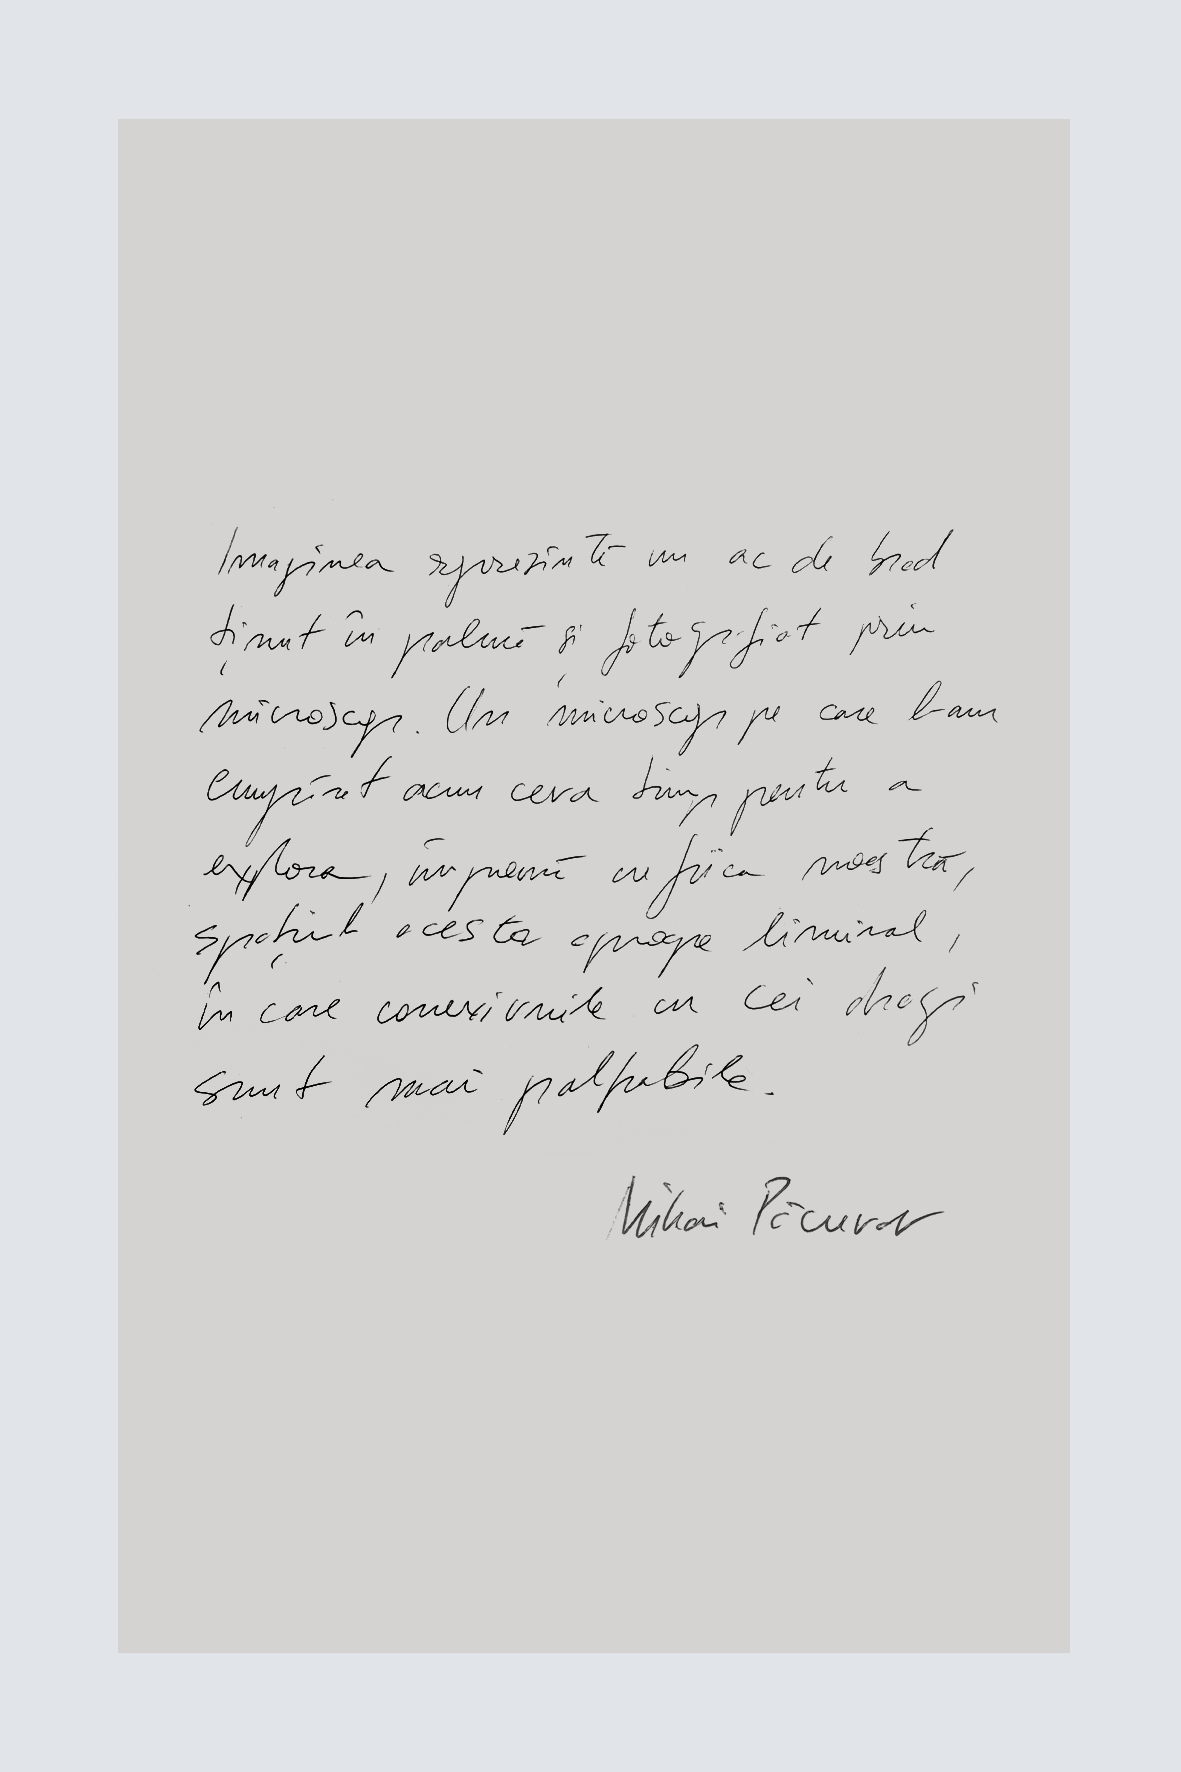 Imaginea reprezintă un ac de brad
ținut în palmă și fotografiat prin
microscop. Un microscop pe care l-am
cumpărat acum ceva timp pentru a
explora, împreună cu fiica noastră,
spațiul acesta aproape liminal,
în care conexiunile cu cei dragi
sunt mai palpabile.
Mihai Păcurar